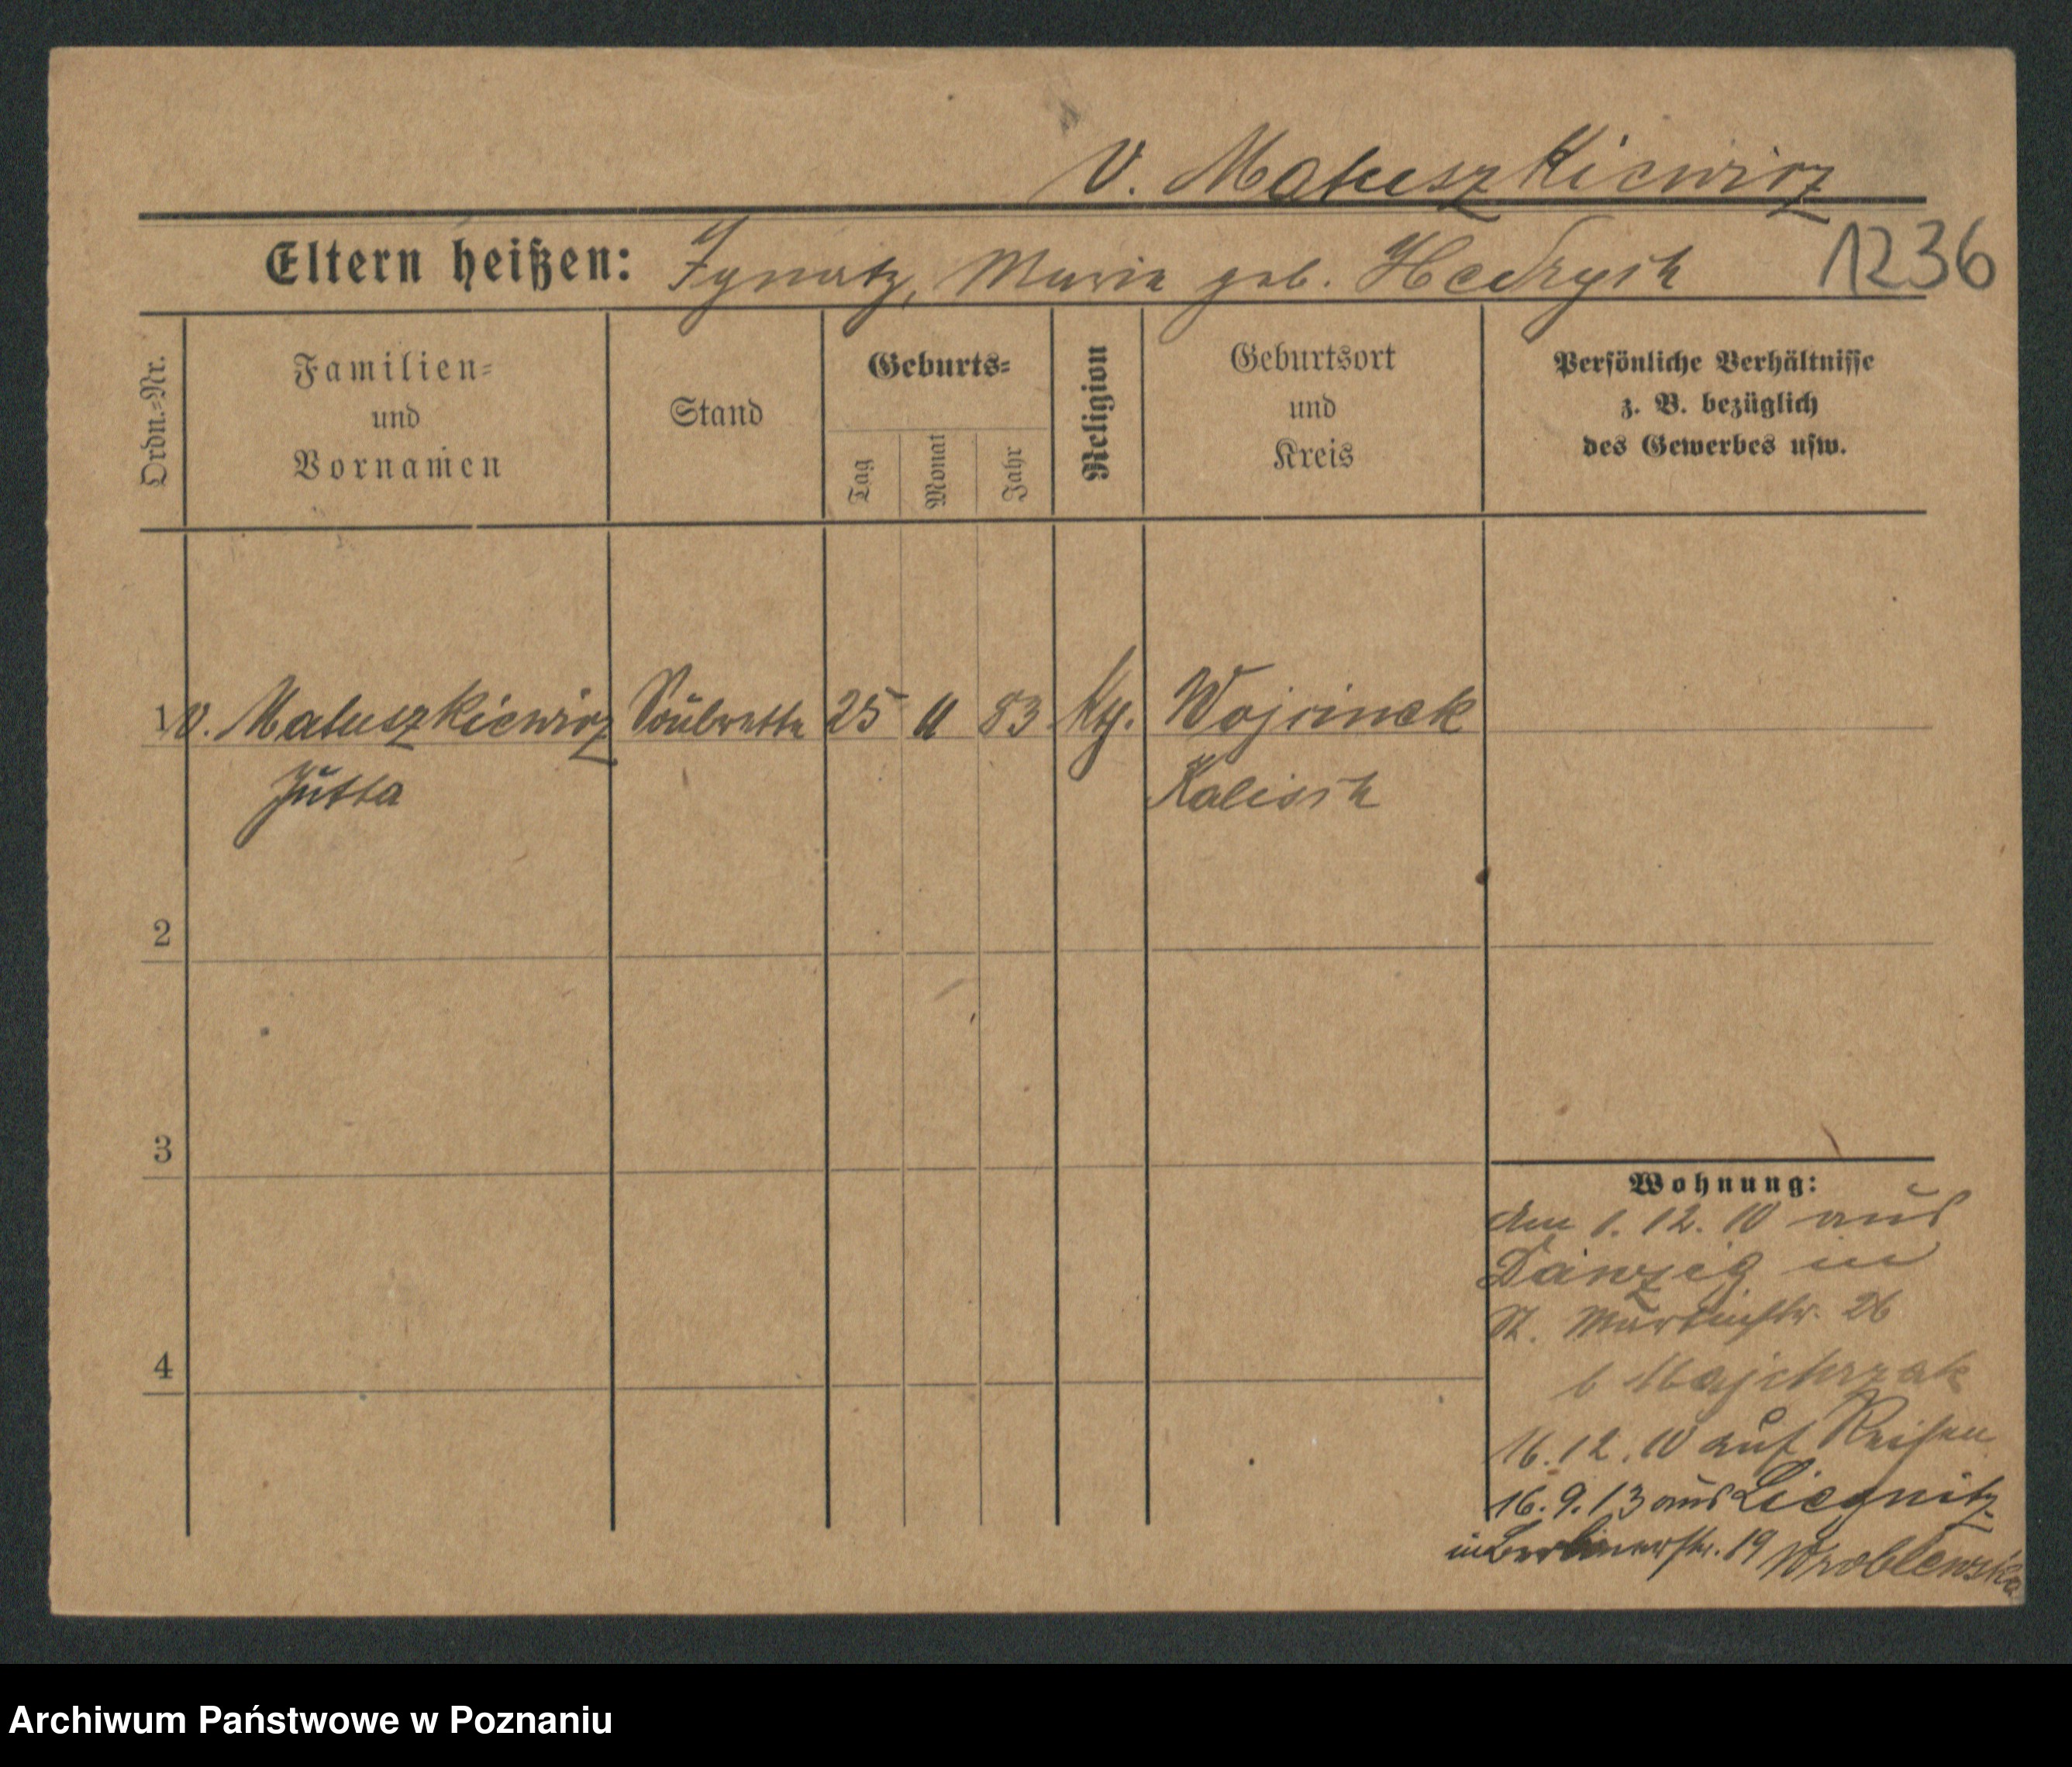 V. Matuszkiewicz
Eltern heißen: Ignatz, Maria geb. Hedrysch 1236
Ordn.-Nr.
Familien-
und
Vornamen
Stand
Geburts-
Tag
Monat
Jahr
Religion
Geburtsort
und
Kreis
Persönliche Verhältnisse
z. B. bezüglich
des Gewerbes usw.
1 v. Matuszkiewicz Soubrette 25 11 83 Wojcinek
Jutta Kalisch
2
3
4
Wohnung:
Am 1. 12. 10 aus
Danzig in
St. Martinstr. 26
b Majchrzak
16. 12. 10 auf Reisen
16. 9. 13 aus Liegnitz
in Berlinerstr. 19 Wroblewska
Archiwum Państwowe w Poznaniu